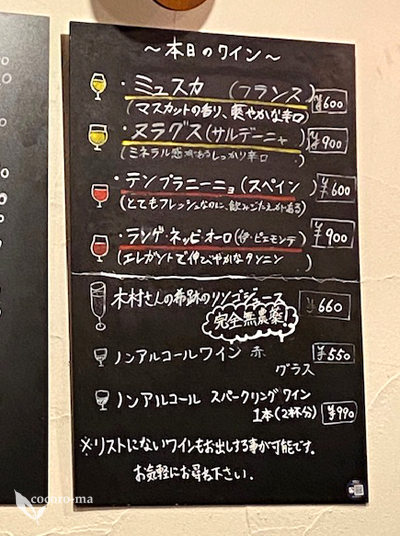 ～本日のワイン～
・ミュスカ (フランス) ¥600
(マスカットの香り、爽やかな辛口)
・ヌラグス(サルデーニャ) ¥900
(ミネラル感があるしっかり辛口)
・テンプラニーニョ(スペイン) ¥600
(とてもフレッシュなのに、飲みごたえがある)
・ランゲ・ネッビオーロ(伊・ピエモンテ) ¥900
(エレガントで伸びやかなタンニン)
木村さんの奇跡のリンゴジュース ¥660
完全無農薬
ノンアルコールワイン 赤 ¥550
グラス
ノンアルコール スパークリングワイン
1本(2杯分) ¥990
※リストにないワインもお出しする事が可能です。
お気軽にお尋ね下さい。
cocoro-ma